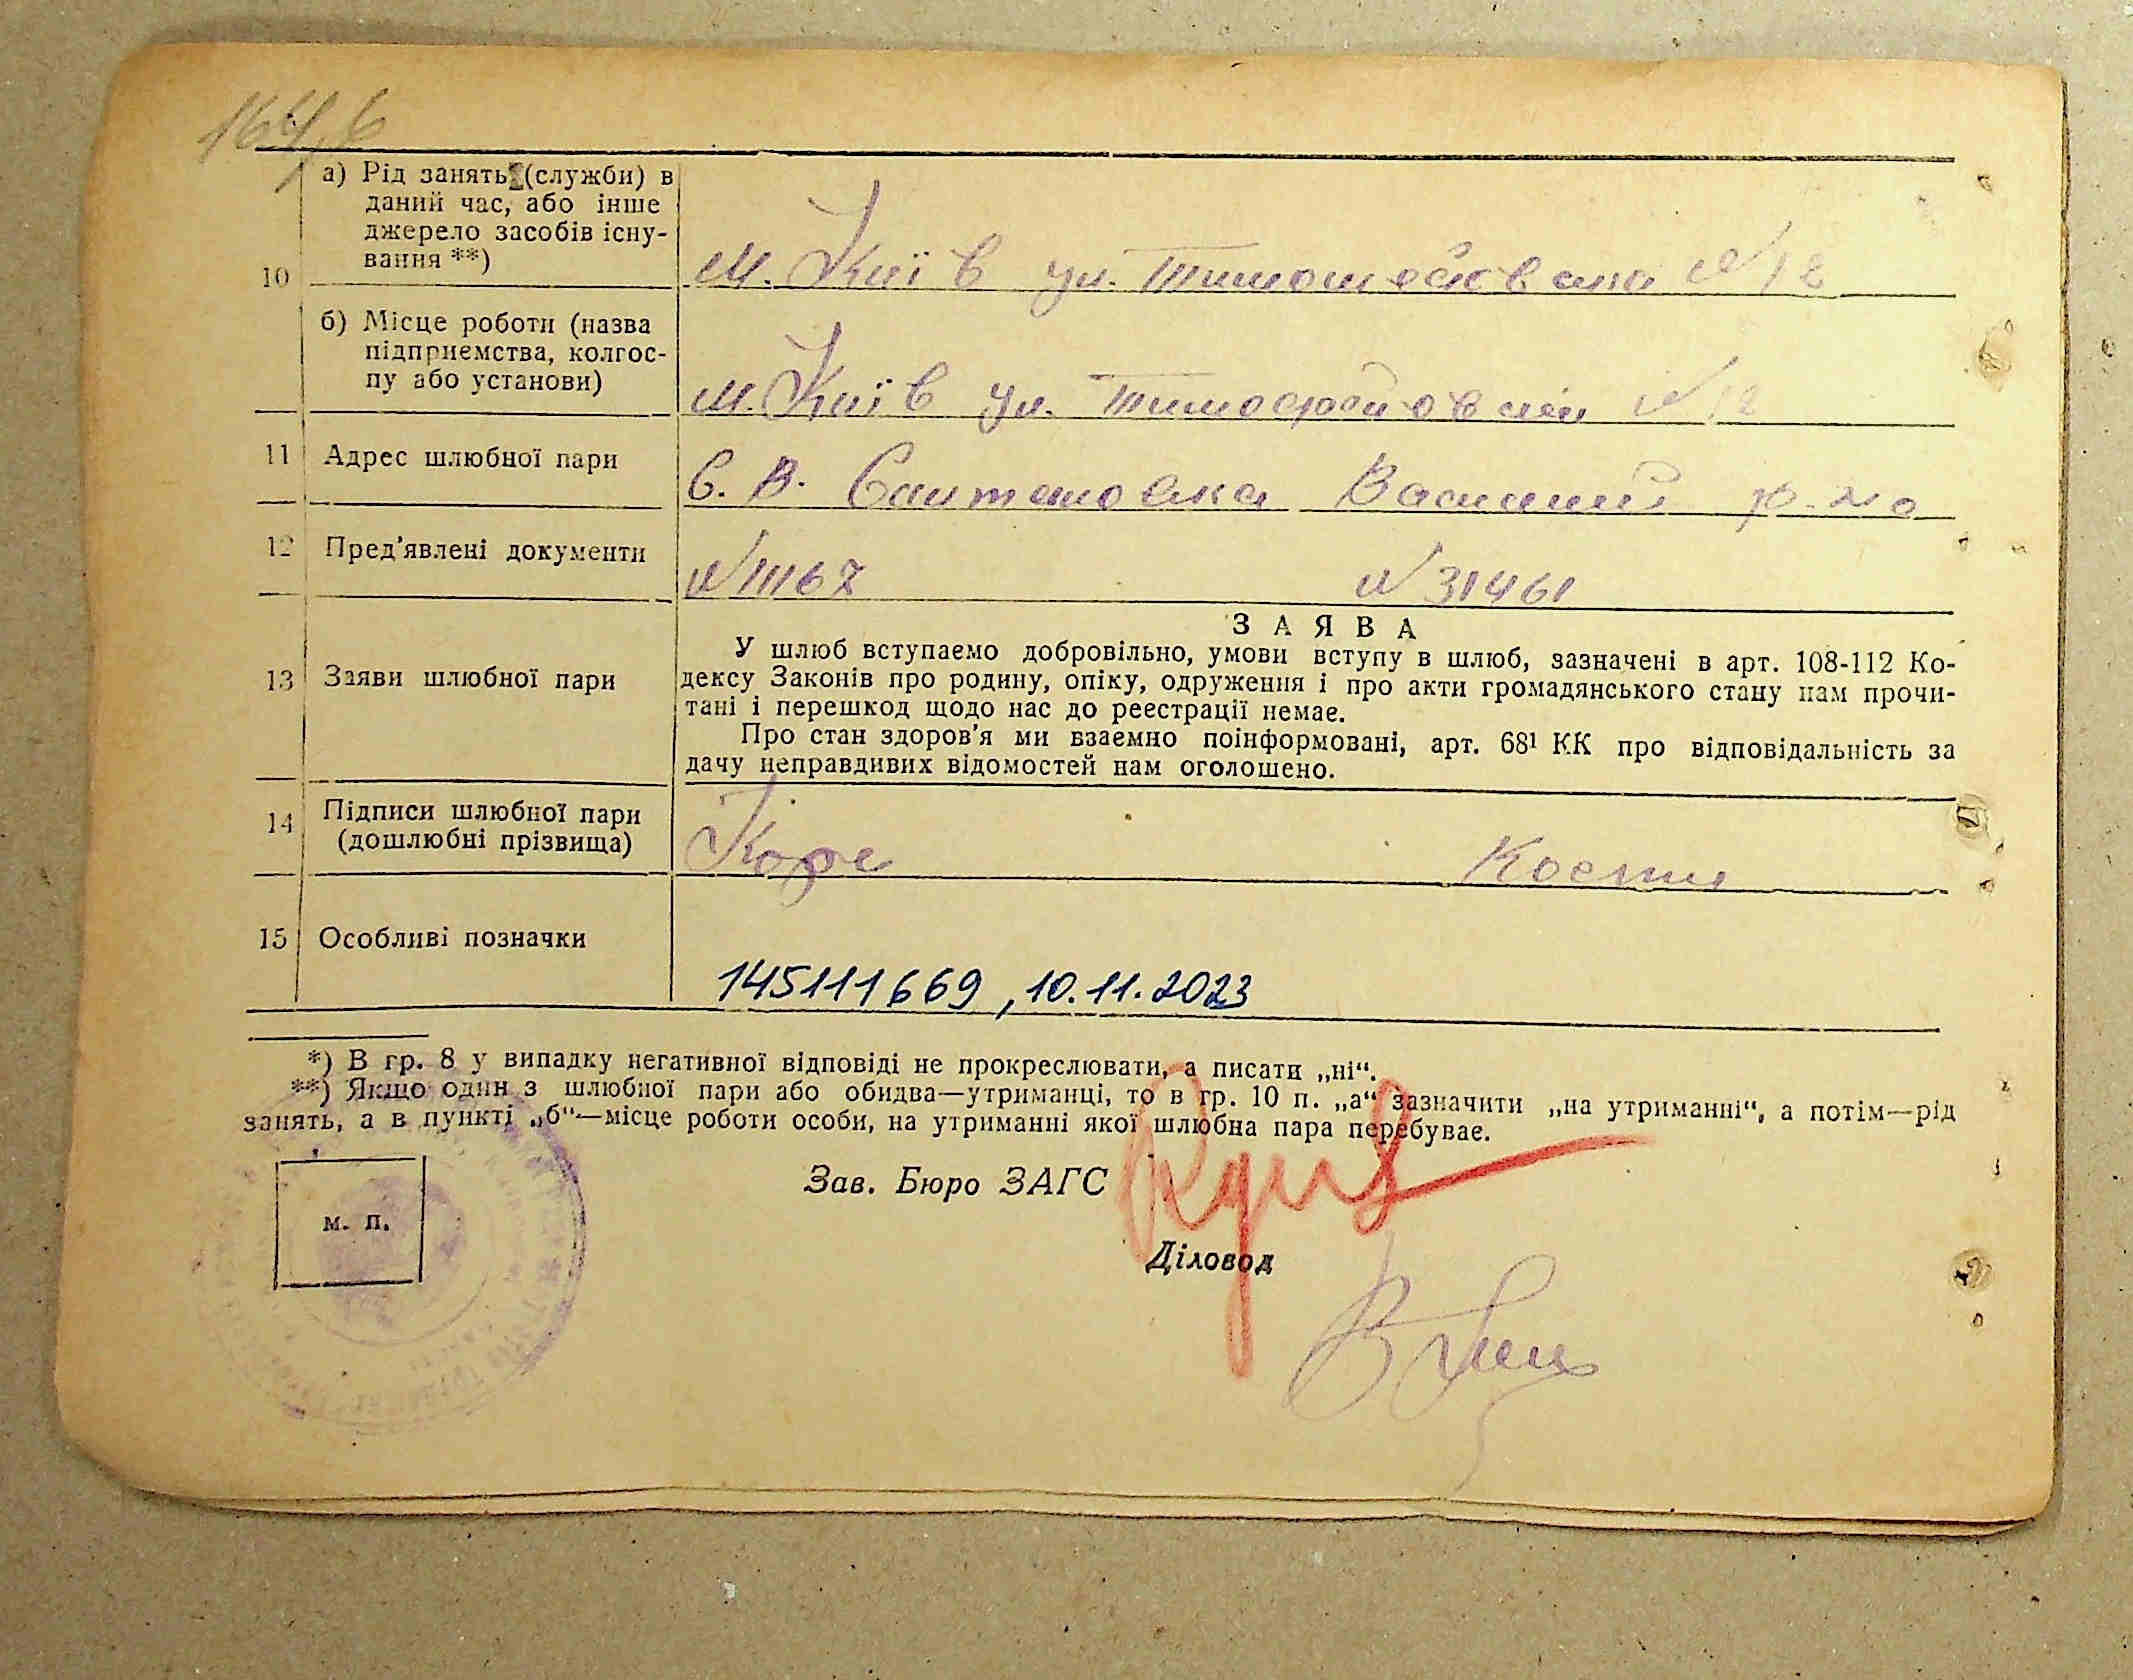 10
а) Рід занять (служби) в
даний час, або інше
джерело засобів існу-
вання **)
м. Київ ул. № 12
б) Місце роботи (назва
підприємства, колгос-
пу або установи)
м. Київ ул. № 12
11 Адрес шлюбної пари
С. В. р-на
12 Пред'явлені документи
№ 11167 № 31461
13 Заяви шлюбної пари
ЗАЯВА
У шлюб вступаємо добровільно, умови вступу в шлюб, зазначені в арт. 108-112 Ко-
дексу Законів про родину, опіку, одруження і про акти громадянського стану нам прочи-
тані і перешкод щодо нас до реестрації немає.
Про стан здоров'я ми взаємно поінформовані, арт. 68¹ КК про відповідальність за
дачу неправдивих відомостей нам оголошено.
14 Підписи шлюбної пари
(дошлюбні прізвища)
15 Особливі позначки
145111669, 10.11.2023
*) В гр. 8 у випадку негативної відповіді не прокреслювати, а писати „ні“.
**) Якщо один з шлюбної пари або обидва—утриманці, то в гр. 10 п. „а“ зазначити „на утриманні“, а потім—рід
занять, а в пункті „б“—місце роботи особи, на утриманні якої шлюбна пара перебуває.
Зав. Бюро ЗАГС
м. п.
Діловод